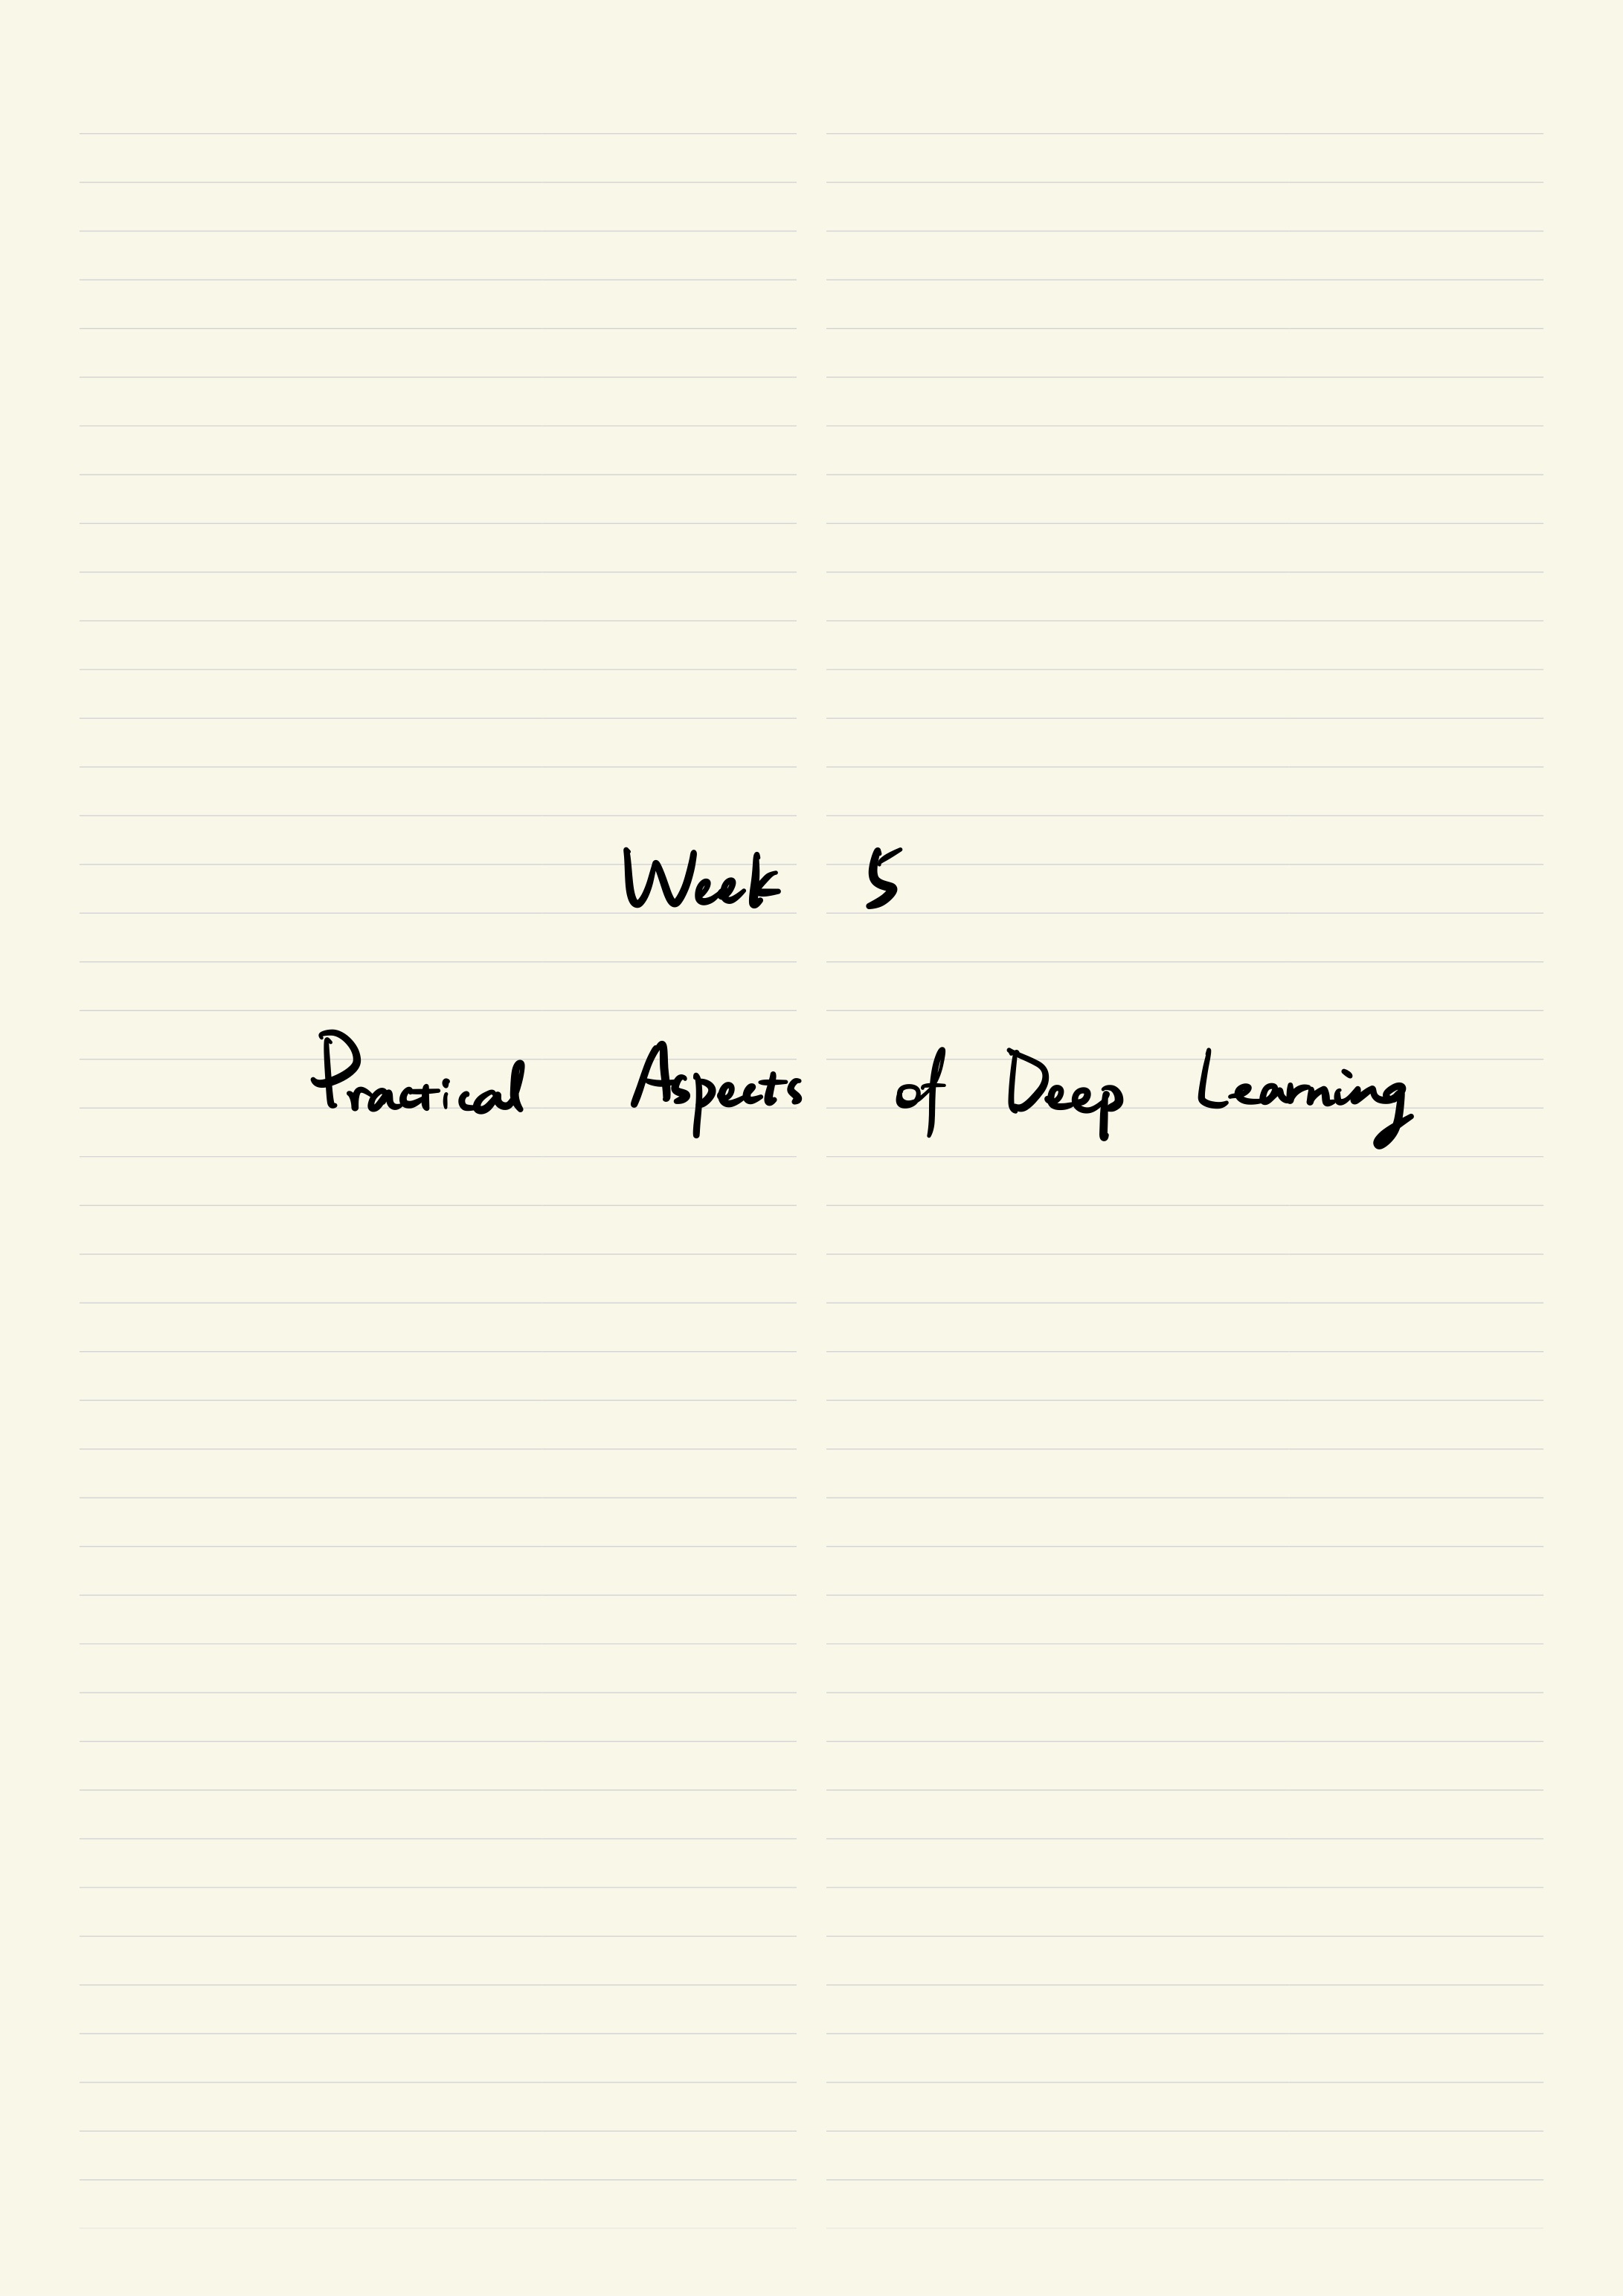 Week 5
Practical Aspects of Deep Learning